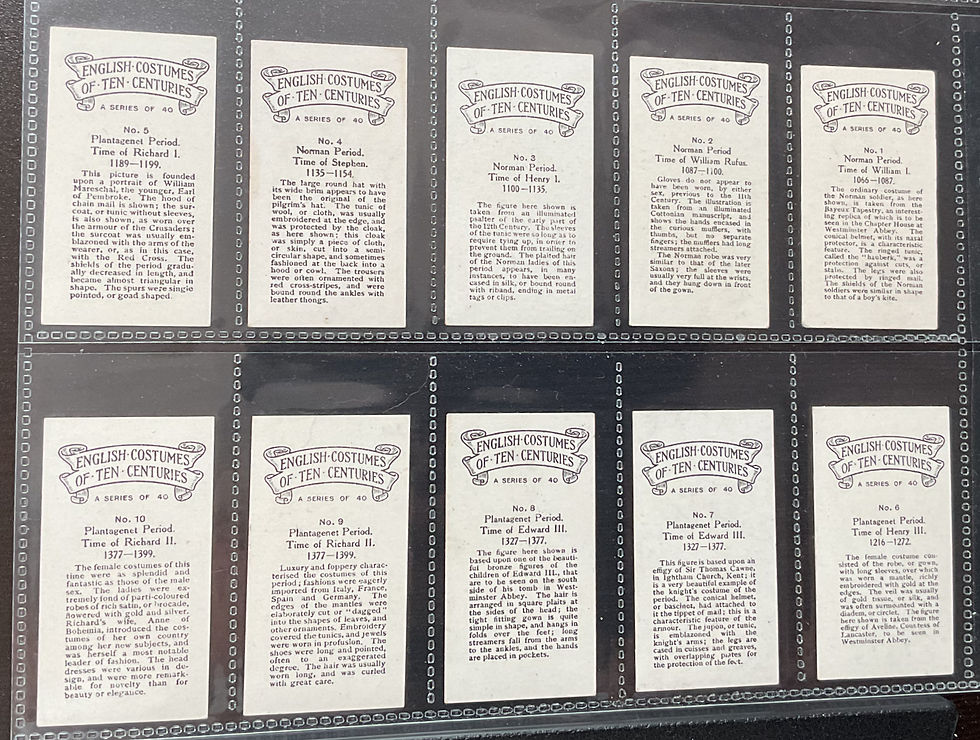 ENGLISH·COSTUMES
OF·TEN·CENTURIES
A SERIES OF 40
No. 5
Plantagenet Period.
Time of Richard I.
1189—1199.
This picture is founded
upon a portrait of William
Mareschal, the younger, Earl
of Pembroke. The hood of
chain mail is shown; the sur-
coat, or tunic without sleeves,
is also shown, as worn over
the armour of the Crusaders;
the surcoat was usually em-
blazoned with the arms of the
wearer, or, as in this case,
with the Red Cross. The
shields of the period gradu-
ally decreased in length, and
became almost triangular in
shape. The spurs were single
pointed, or goad shaped.
ENGLISH·COSTUMES
OF·TEN·CENTURIES
A SERIES OF 40
No. 4
Norman Period.
Time of Stephen.
1135—1154.
The large round hat with
its wide brim appears to have
been the original of the
pilgrim's hat. The tunic of
wool, or cloth, was usually
embroidered at the edge, and
was protected by the cloak,
as here shown; this cloak
was simply a piece of cloth,
or skin, cut into a semi-
circular shape, and sometimes
fashioned at the back into a
hood or cowl. The trousers
were often ornamented with
red cross-stripes, and were
bound round the ankles with
leather thongs.
ENGLISH·COSTUMES
OF·TEN·CENTURIES
A SERIES OF 40
No. 3
Norman Period.
Time of Henry I.
1100—1135.
The figure here shown is
taken from an illuminated
psalter of the early part of
the 12th Century. The sleeves
of the tunic were so long as to
require tying up, in order to
prevent them from trailing on
the ground. The plaited hair
of the Norman ladies of this
period appears, in many
instances, to have been en-
cased in silk, or bound round
with riband, ending in metal
tags or clips.
ENGLISH·COSTUMES
OF·TEN·CENTURIES
A SERIES OF 40
No. 2
Norman Period
Time of William Rufus.
1087—1100.
Gloves do not appear to
have been worn, by either
sex, previous to the 11th
Century. The illustration is
taken from an illuminated
Cottonian manuscript, and
shows the hands encased in
the curious mufflers, with
thumbs, but no separate
fingers; the mufflers had long
streamers attached.
The Norman robe was very
similar to that of the later
Saxons; the sleeves were
usually very full at the wrists,
and they hung down in front
of the gown.
ENGLISH·COSTUMES
OF·TEN·CENTURIES
A SERIES OF 40
No. 1
Norman Period.
Time of William I.
1066—1087.
The ordinary costume of
the Norman soldier, as here
shown, is taken from the
Bayeux Tapestry, an interest-
ing replica of which is to be
seen in the Chapter House at
Westminster Abbey. The
conical helmet, with its nasal
protector, is a characteristic
feature. The ringed tunic,
called the "hauberk," was a
protection against cuts, or
stabs. The legs were also
protected by ringed mail.
The shields of the Norman
soldiers were similar in shape
to that of a boy's kite.
ENGLISH·COSTUMES
OF·TEN·CENTURIES
A SERIES OF 40
No. 10
Plantagenet Period.
Time of Richard II.
1377—1399.
The female costumes of this
time were as splendid and
fantastic as those of the male
sex. The ladies were ex-
tremely fond of parti-coloured
robes of rich satin, or brocade,
flowered with gold and silver.
Richard's wife, Anne of
Bohemia, introduced the cos-
tumes of her own country
among her new subjects, and
was herself a most notable
leader of fashion. The head
dresses were various in de-
sign, and were more remark-
able for novelty than for
beauty or elegance.
ENGLISH·COSTUMES
OF·TEN·CENTURIES
A SERIES OF 40
No. 9
Plantagenet Period.
Time of Richard II.
1377—1399.
Luxury and foppery charac-
terised the costumes of this
period; fashions were eagerly
imported from Italy, France,
Spain and Germany. The
edges of the mantles were
elaborately cut or "dagged"
into the shapes of leaves, and
other ornaments. Embroidery
covered the tunics, and jewels
were worn in profusion. The
shoes were long and pointed,
often to an exaggerated
degree. The hair was usually
worn long, and was curled
with great care.
ENGLISH·COSTUMES
OF·TEN·CENTURIES
A SERIES OF 40
No. 8
Plantagenet Period.
Time of Edward III.
1327—1377.
The figure here shown is
based upon one of the beauti-
ful bronze figures of the
children of Edward III., that
are to be seen on the south
side of his tomb in West-
minster Abbey. The hair is
arranged in square plaits at
the sides of the head; the
tight fitting gown is quite
simple in shape, and hangs in
folds over the feet; long
streamers fall from the arms
to the ankles, and the hands
are placed in pockets.
ENGLISH·COSTUMES
OF·TEN·CENTURIES
A SERIES OF 40
No. 7
Plantagenet Period.
Time of Edward III.
1327—1377.
This figure is based upon an
effigy of Sir Thomas Cawne,
in Ightham Church, Kent; it
is a very beautiful example of
the knight's costume of the
period. The conical helmet,
or bascinet, had attached to
it the tippet of mail; this is a
characteristic feature of the
armour. The jupon, or tunic,
is emblazoned with the
knight's arms; the legs are
cased in cuisses and greaves,
with overlapping plates for
the protection of the feet.
ENGLISH·COSTUMES
OF·TEN·CENTURIES
A SERIES OF 40
No. 6
Plantagenet Period.
Time of Henry III.
1216—1272.
The female costume con-
sisted of the robe, or gown,
with long sleeves, over which
was worn a mantle, richly
embroidered with gold at the
edges. The veil was usually
of gold tissue, or silk, and
was often surmounted with a
diadem, or circlet. The figure
here shown is taken from the
effigy of Aveline, Countess of
Lancaster, to be seen in
Westminster Abbey.